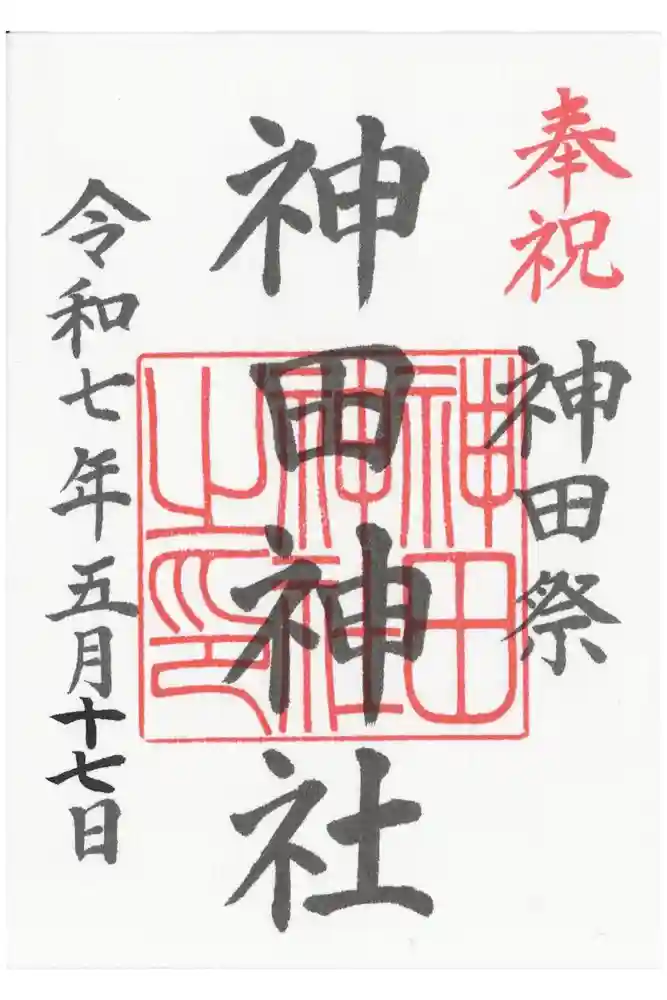 奉祝
神田祭
神田神社
神田
神社
之印
令和七年五月十七日